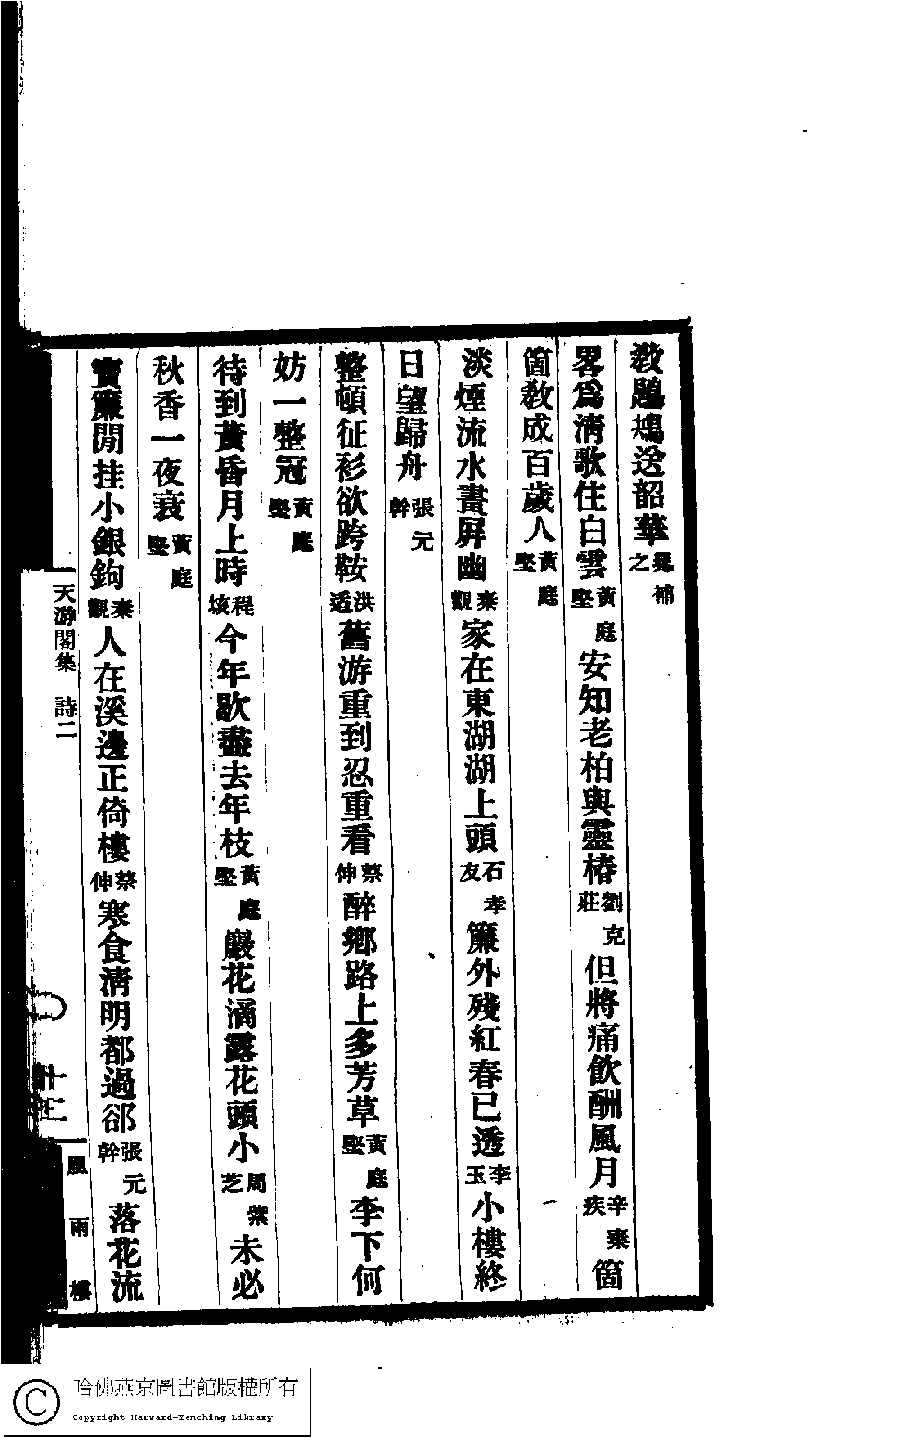 教鶗鴂送韶華晁補之
畧爲淸歌住白雲黃庭堅安知老柏與靈椿劉克莊但將痛飲酬風月辛棄疾箇
箇教成百歲人黃庭堅
淡煙流水畫屏幽秦觀家在東湖湖上頭石孝友簾外殘紅春已透李玉小樓終
日望歸舟張元幹
整頓征衫欲跨鞍洪适舊游重到忍重看蔡伸醉鄉路上多芳草黃庭堅李下何
妨一整冠黃庭堅
待到黃昏月上時程垓今年歇盡去年枝黃庭堅巖花滴露花頭小周紫芝未必
秋香一夜衰黃庭堅
寶簾閒挂小銀鉤秦觀人在溪邊正倚樓蔡伸寒食淸明都過郤張元幹落花流
天游閣集 詩二
十二
風雨樓
哈佛燕京圖書館版權所有
Copyright Harvard-Yenching Library